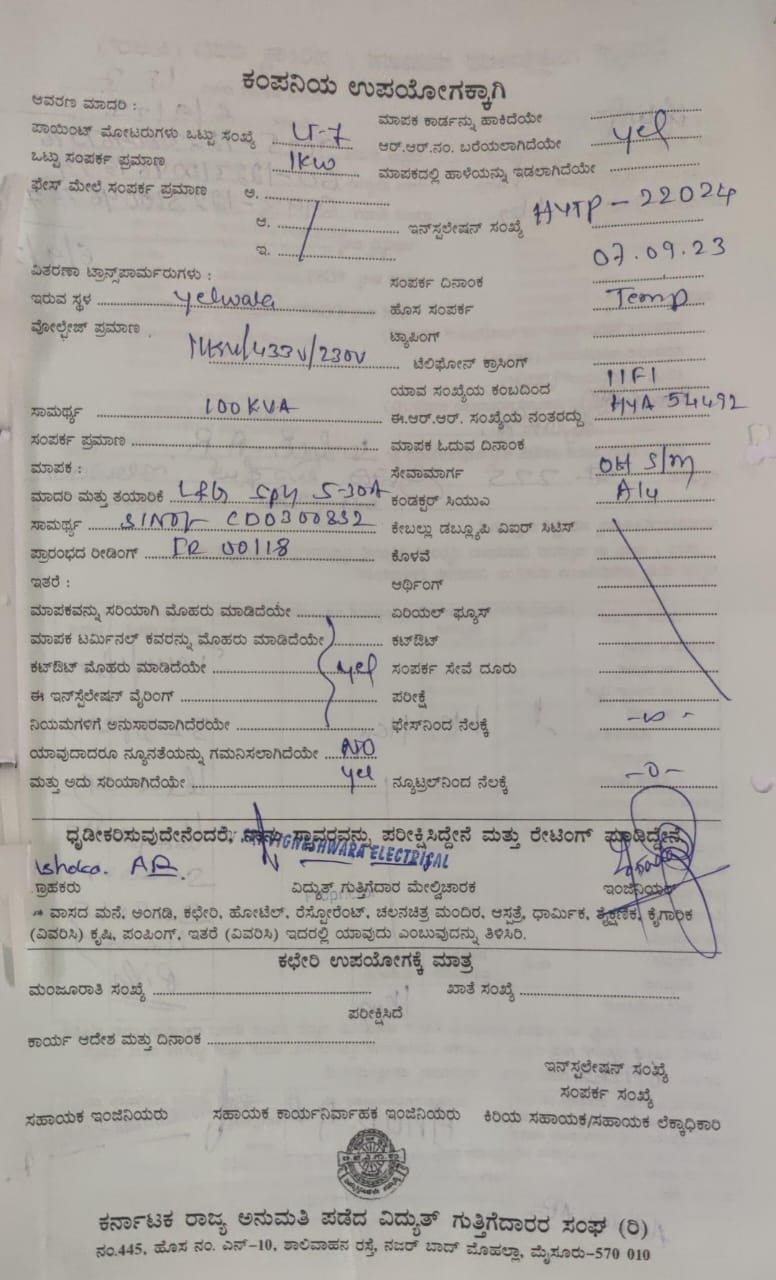 ಕಂಪನಿಯ ಉಪಯೋಗಕ್ಕಾಗಿ
ಆವರಣ ಮಾದರಿ :
ಮಾಪಕ ಕಾರ್ಡನ್ನು ಹಾಕಿದೆಯೇ
ಪಾಯಿಂಟ್ ಮೋಟರುಗಳು ಒಟ್ಟು ಸಂಖ್ಯೆ LT-7 ಆರ್.ಆರ್.ನಂ. ಬರೆಯಲಾಗಿದೆಯೇ yes
ಒಟ್ಟು ಸಂಪರ್ಕ ಪ್ರಮಾಣ 1KW ಮಾಪಕದಲ್ಲಿ ಹಾಳೆಯನ್ನು ಇಡಲಾಗಿದೆಯೇ
ಫೇಸ್ ಮೇಲೆ ಸಂಪರ್ಕ ಪ್ರಮಾಣ ಅ.
ಆ. ಇನ್‌ಸ್ಟಲೇಷನ್ ಸಂಖ್ಯೆ HYTP-22024
ಇ.
ವಿತರಣಾ ಟ್ರಾನ್ಸ್‌ಪಾರ್ಮರುಗಳು :
ಸಂಪರ್ಕ ದಿನಾಂಕ 07.09.23
ಇರುವ ಸ್ಥಳ Yelwala ಹೊಸ ಸಂಪರ್ಕ Temp
ವೋಲ್ಟೇಜ್ ಪ್ರಮಾಣ 11KV/433V/230V ಟ್ಯಾಪಿಂಗ್
ಟೆಲಿಫೋನ್ ಕ್ರಾಸಿಂಗ್
ಯಾವ ಸಂಖ್ಯೆಯ ಕಂಬದಿಂದ 11F1
ಸಾಮರ್ಥ್ಯ 100KVA ಈ.ಆರ್.ಆರ್. ಸಂಖ್ಯೆಯ ನಂತರದ್ದು HYA 54492
ಸಂಪರ್ಕ ಪ್ರಮಾಣ ಮಾಪಕ ಓದುವ ದಿನಾಂಕ
ಮಾಪಕ : ಸೇವಾಮಾರ್ಗ OH S/M
ಮಾದರಿ ಮತ್ತು ತಯಾರಿಕೆ L&G 5-30A ಕಂಡಕ್ಟರ್ ಸಿಯುಎ Alu
ಸಾಮರ್ಥ್ಯ SlNo:- CD0300832 ಕೇಬಲ್ಲು ಡಬ್ಲ್ಯೂಪಿ ವಿಐರ್ ಸಿಟಿಸ್
ಪ್ರಾರಂಭದ ರೀಡಿಂಗ್ IR 00118 ಕೊಳವೆ
ಇತರೆ : ಆರ್ಥಿಂಗ್
ಮಾಪಕವನ್ನು ಸರಿಯಾಗಿ ಮೊಹರು ಮಾಡಿದೆಯೇ ಏರಿಯಲ್ ಫ್ಯೂಸ್
ಮಾಪಕ ಟರ್ಮಿನಲ್ ಕವರನ್ನು ಮೊಹರು ಮಾಡಿದೆಯೇ ಕಟ್‌ಔಟ್
ಕಟ್‌ಔಟ್ ಮೊಹರು ಮಾಡಿದೆಯೇ yes ಸಂಪರ್ಕ ಸೇವೆ ದೂರು
ಈ ಇನ್‌ಸ್ಟೆಲೇಷನ್ ವೈರಿಂಗ್ ಪರೀಕ್ಷೆ
ನಿಯಮಗಳಿಗೆ ಅನುಸಾರವಾಗಿದೆರಯೇ ಫೇಸ್‌ನಿಂದ ನೆಲಕ್ಕೆ -∞-
ಯಾವುದಾದರೂ ನ್ಯೂನತೆಯನ್ನು ಗಮನಿಸಲಾಗಿದೆಯೇ NO
ಮತ್ತು ಅದು ಸರಿಯಾಗಿದೆಯೇ yes ನ್ಯೂಟ್ರಲ್‌ನಿಂದ ನೆಲಕ್ಕೆ -0-
ಧೃಡೀಕರಿಸುವುದೇನೆಂದರೆ, ನಾನು ಸ್ಥಾವರವನ್ನು ಪರೀಕ್ಷಿಸಿದ್ದೇನೆ ಮತ್ತು ರೇಟಿಂಗ್ ಮಾಡಿದ್ದೇನೆ
GNESHWARA ELECTRICAL
ಗ್ರಾಹಕರು ವಿದ್ಯುತ್ ಗುತ್ತಿಗೆದಾರ ಮೇಲ್ವಿಚಾರಕ ಇಂಜಿನಿಯರ್
ವಾಸದ ಮನೆ, ಅಂಗಡಿ, ಕಛೇರಿ, ಹೋಟೆಲ್, ರೆಸ್ಟೋರೆಂಟ್, ಚಲನಚಿತ್ರ ಮಂದಿರ, ಆಸ್ಪತ್ರೆ, ಧಾರ್ಮಿಕ, ಶೈಕ್ಷಣಿಕ, ಕೈಗಾರಿಕ
(ವಿವರಿಸಿ) ಕೃಷಿ, ಪಂಪಿಂಗ್, ಇತರೆ (ವಿವರಿಸಿ) ಇದರಲ್ಲಿ ಯಾವುದು ಎಂಬುವುದನ್ನು ತಿಳಿಸಿರಿ.
ಕಛೇರಿ ಉಪಯೋಗಕ್ಕೆ ಮಾತ್ರ
ಮಂಜೂರಾತಿ ಸಂಖ್ಯೆ ಖಾತೆ ಸಂಖ್ಯೆ
ಪರೀಕ್ಷಿಸಿದೆ
ಕಾರ್ಯ ಆದೇಶ ಮತ್ತು ದಿನಾಂಕ
ಇನ್‌ಸ್ಟಲೇಷನ್ ಸಂಖ್ಯೆ
ಸಂಪರ್ಕ ಸಂಖ್ಯೆ
ಸಹಾಯಕ ಇಂಜಿನಿಯರು ಸಹಾಯಕ ಕಾರ್ಯನಿರ್ವಾಹಕ ಇಂಜಿನಿಯರು ಕಿರಿಯ ಸಹಾಯಕ/ಸಹಾಯಕ ಲೆಕ್ಕಾಧಿಕಾರಿ
ಕರ್ನಾಟಕ ರಾಜ್ಯ ಅನುಮತಿ ಪಡೆದ ವಿದ್ಯುತ್ ಗುತ್ತಿಗೆದಾರರ ಸಂಘ (ರಿ)
ನಂ.445, ಹೊಸ ನಂ. ಎನ್-10, ಶಾಲಿವಾಹನ ರಸ್ತೆ, ನಜರ್ ಬಾದ್ ಮೊಹಲ್ಲಾ, ಮೈಸೂರು-570 010